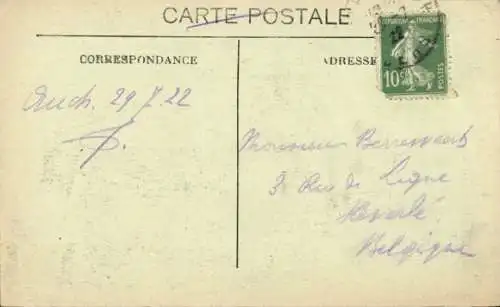 CARTE POSTALE
CORRESPONDANCE
ADRESSE
REPUBLIQUE FRANÇAISE
10c
POSTES
Auch. 29 7. 22
Monsieur Berrewaerts
3 Rue de Ligne
Heverlé
Belgique